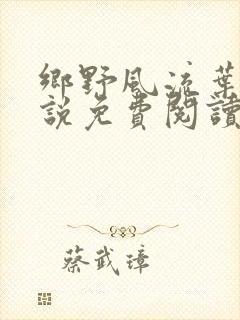 鄉野風流葉
說免費閱讀
蔡武璋